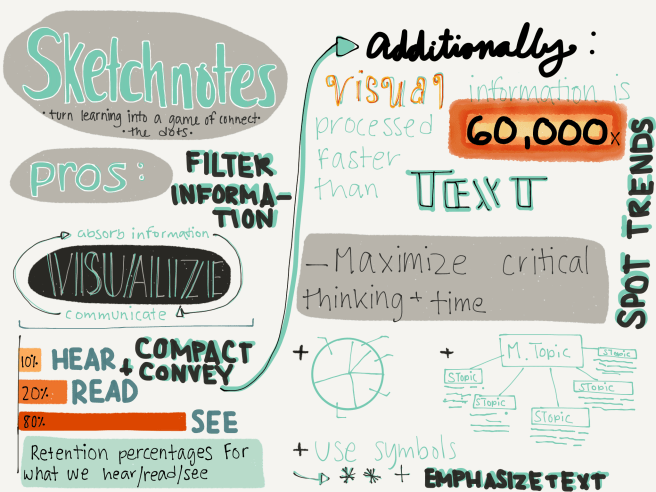 Sketchnotes
• turn learning into a game of connect•
• the dots •
pros:
FILTER
INFORMA-
TION
absorb information
VISUALIZE
communicate
10% HEAR
+ COMPACT
CONVEY
20% READ
80% SEE
Retention percentages for
what we hear/read/see
Additionally:
visual information is
processed 60,000x
faster
than TEXT
SPOT TRENDS
- Maximize critical
thinking + time
+
+ M. Topic
STopic
STopic
STopic
STopic
STopic
+ USE symbols
* * + EMPHASIZE TEXT